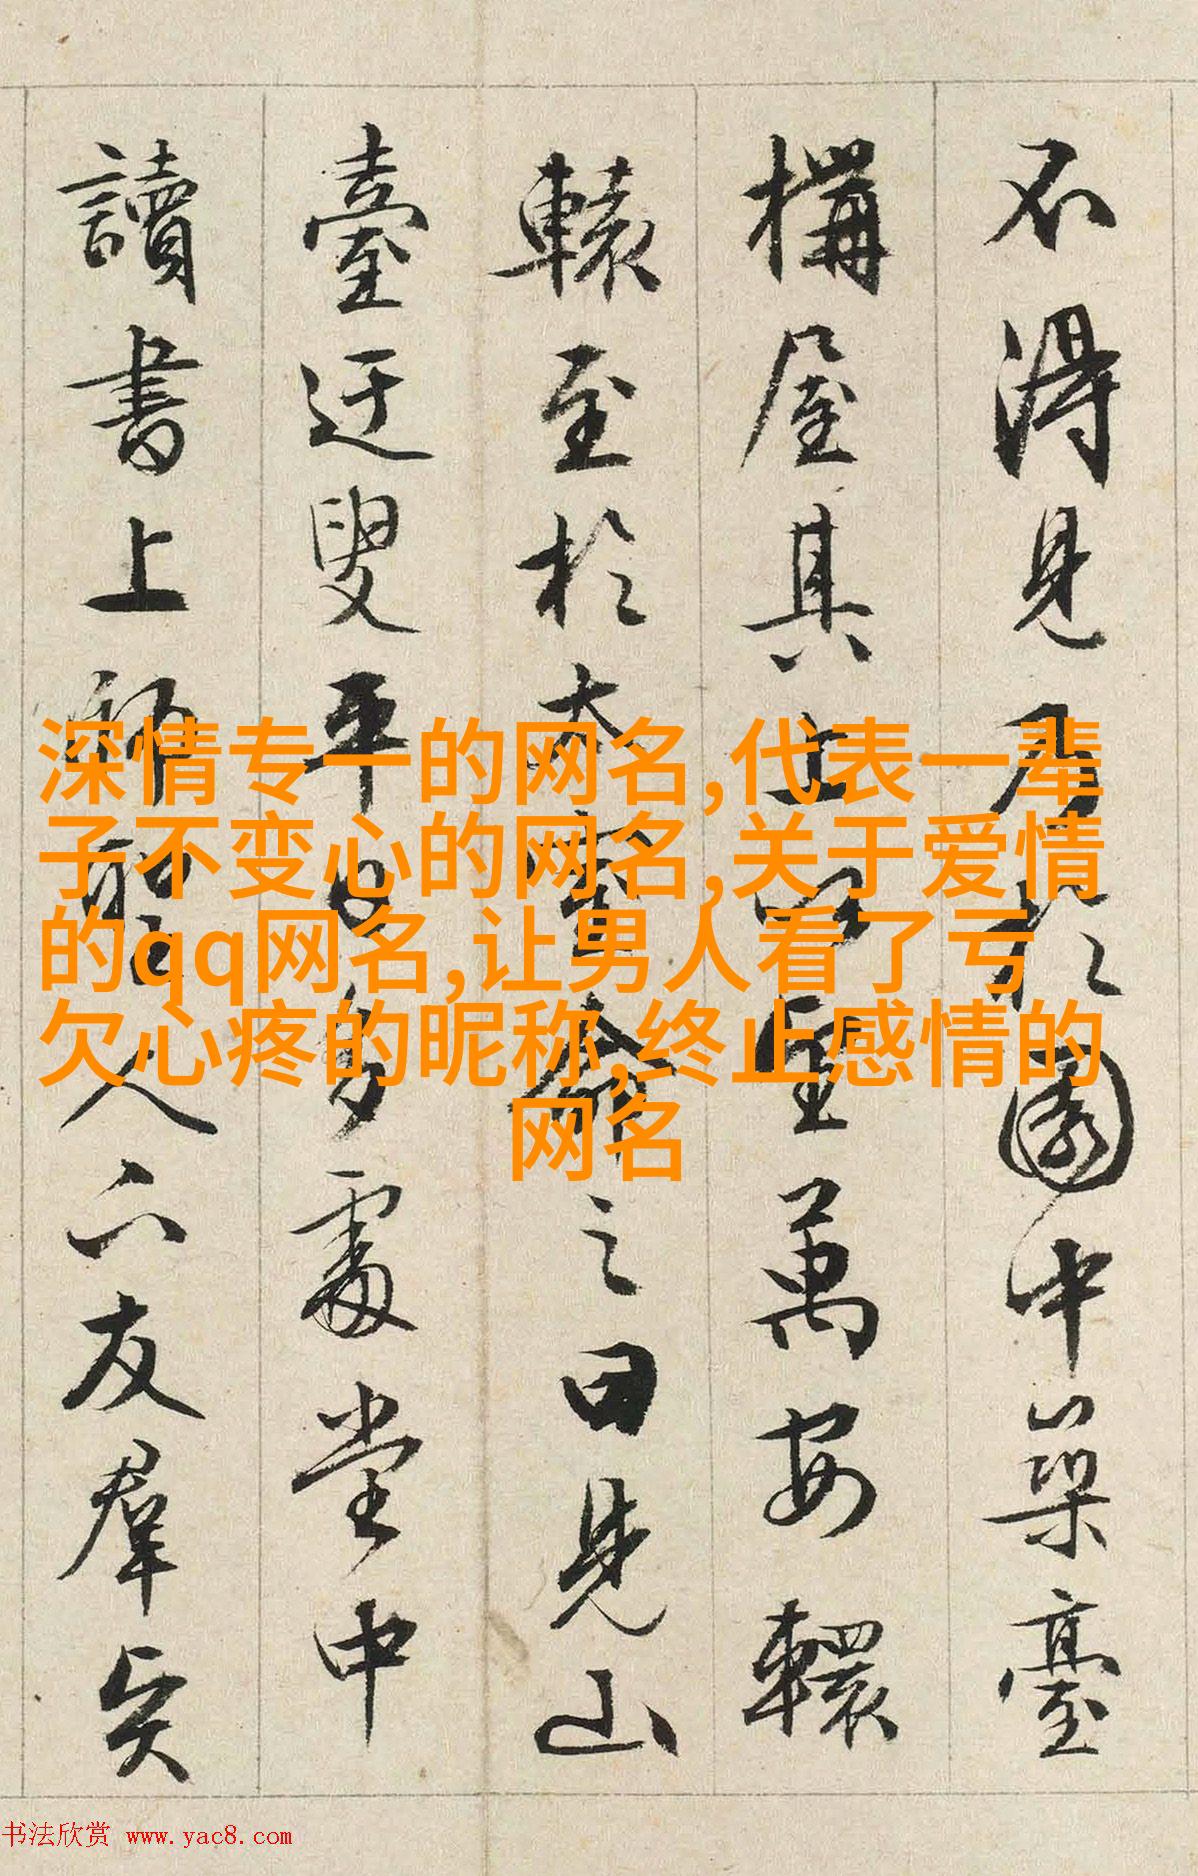 不得見乃於園中築臺
構屋其上以望萬安轘
轅至於太室命之曰見山
臺迂叟平日多處堂中
讀書上師聖人下友羣賢
深情专一的网名,代表一辈
子不变心的网名,关于爱情
的qq网名,让男人看了亏
欠心疼的昵称,终止感情的
网名
书法欣赏 www.yac8.com